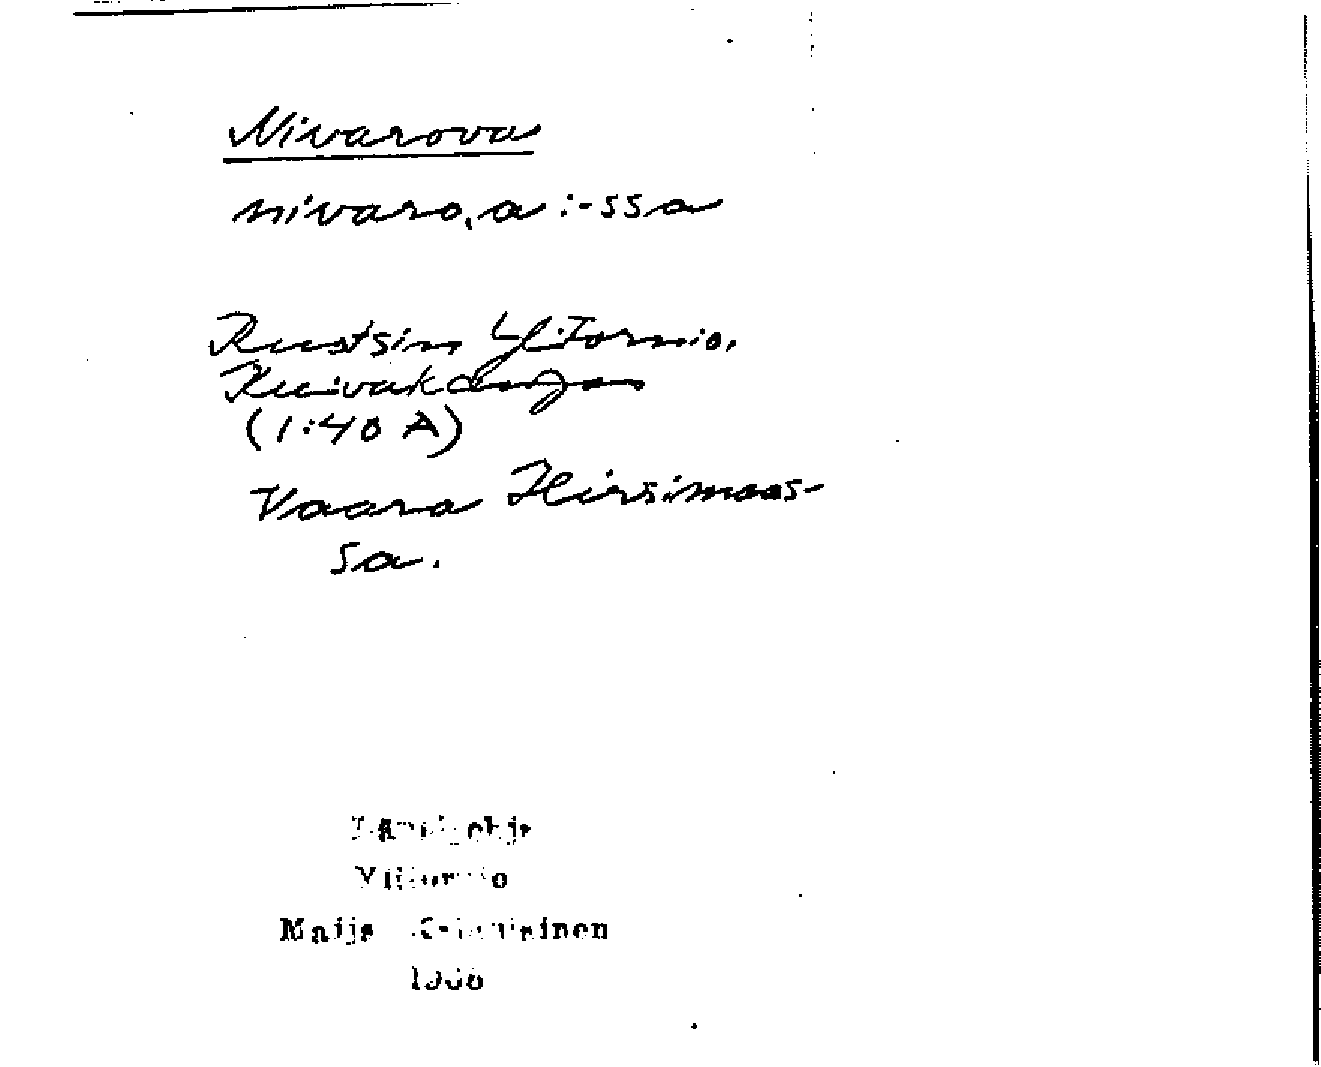 Nivarova
nivaro,a :-ssa
Ruotsin Yli-Tornio.
Kuivakangas
(1:40 A)
Vaara Hirsimaas-
sa.
Ylitornio
Maija